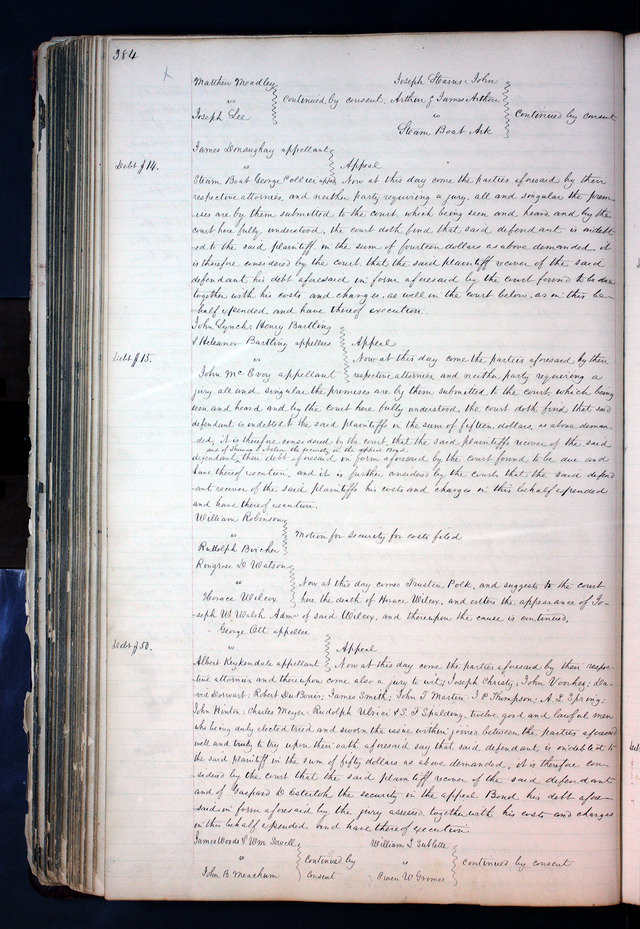 384
Matthew Moadley
vs
Joseph Lee
Continued by consent
Joseph Stearns, John
Arthur & James Arthur
vs
Steam Boat Ark
Continued by consent
James Donaughay appellant
vs
Appeal
Debt $14.
Steam Boat George Collier appee Now at this day come the parties aforesaid by their
respective attornies, and neither party requiring a jury, all and singular the prem-
ises are by them submitted to the court, which being seen and heard, and by the
court here fully understood, the court doth find that said defendant is indebt
ed to the said plaintiff in the sum of fourteen dollars as above demanded, it
is therefore considered by the court, that the said plaintiff recover of the said
defendant his debt aforesaid in form aforesaid by the court found to be due
together with his costs and charges, as well in the court below, as in this be-
half expended, and have thereof execution.
John Lynch, Henry Bartling
& Heleanor Bartling appellees
vs
Appeal
Debt $15.
Now at this day come the parties aforesaid by their
John Mc Evoy appellant
respective attornies, and neither party requiring a
jury, all and singular the premises are by them submitted to the court, which being
seen and heard and by the court here fully understood, the court doth find that said
defendant is indebted to the said plaintiffs in the sum of fifteen dollars, as above deman-
ded, it is therefore considered by the court, that the said plaintiffs recover of the said
and of Thomas the security in the appeal Bond
defendant, their debt aforesaid in form aforesaid by the court found to be due and
have thereof execution, and it is further considered by the court, that the said defend
ant recover of the said plaintiffs his costs and charges in this behalf expended
and have thereof execution.
William Robinson
vs
Rudolph Bircher
Motion for security for costs filed
Ringrose D Watson
vs
Horace Wilcox
Now at this day comes Trusten Polk, and suggests to the court
here the death of Horace Wilcox, and enters the appearance of Jo-
seph W. Walsh Admr of said Wilcox, and thereupon the cause is continued.
George Ott appellee
vs
Appeal
Debt $50.
Albert Kuykendale appellant
Now at this day come the parties aforesaid by their respec-
tive attornies and thereupon come also a jury to wit; Joseph Christy, John Voorhez, Da-
vid Dorwart, Robert DuBouis, James Smith, John T Martin J. P. Thompson, A. L Spring,
John Hinton, Charles Meyer, Rudolph Ulrici & S. F Spalding, twelve good and lawful men
who being duly elected tried and sworn the issue within joined between the parties aforesaid
well and truly to try upon their oath aforesaid say that said defendant is indebted to
the said plaintiff in the sum of fifty dollars as above demanded, it is therefore con-
sidered by the court that the said plaintiff recover of the said defendant
and of Gaspard D the security in the appeal Bond his debt afore-
said in form aforesaid by the jury assessed, together with his costs and charges
in this behalf expended and have thereof execution
James Woods & Wm Sewell
vs
John B Meachum
Continued by
consent
William L Sublette
vs
Owen W Grimes
continued by consent